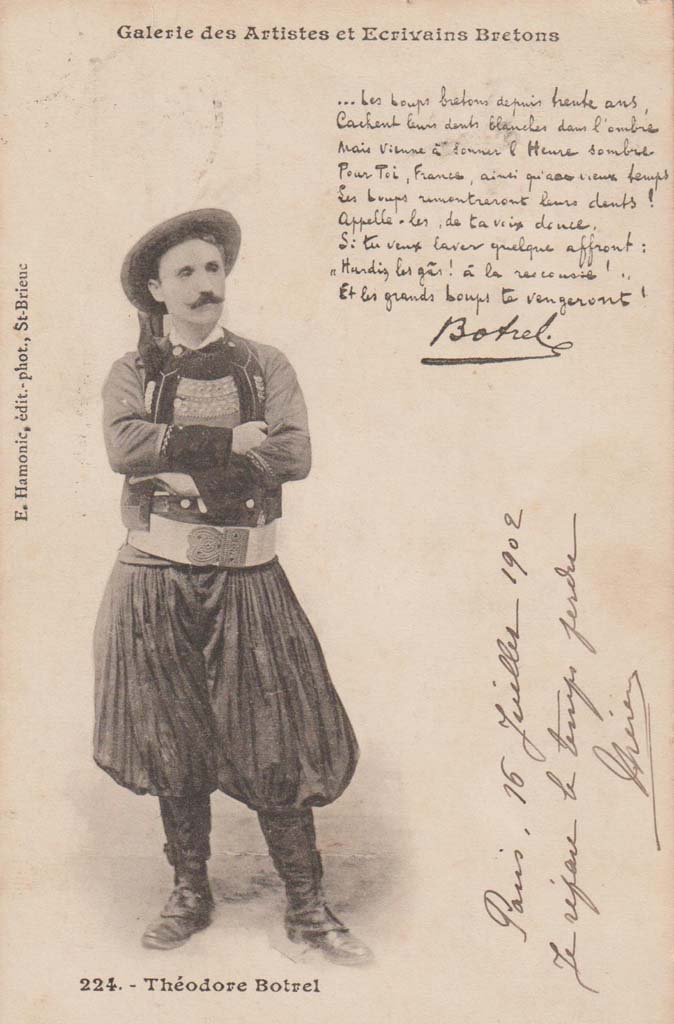 Galerie des Artistes et Ecrivains Bretons
... Les Loups bretons depuis trente ans,
Cachent leurs dents blanches dans l'ombre
Mais vienne à sonner l'Heure sombre
Pour Toi, France, ainsi qu'aux vieux temps
Les Loups remontreront leurs dents !
Appelle-les, de ta voix douce,
Si tu veux laver quelque affront :
"Hardis, les gâs ! à la rescousse !"
Et les grands Loups te vengeront !
Botrel.
E. Hamonic, édit.-phot., St-Brieuc
Paris, 16 Juillet 1902
Je répare le temps perdu
224. - Théodore Botrel